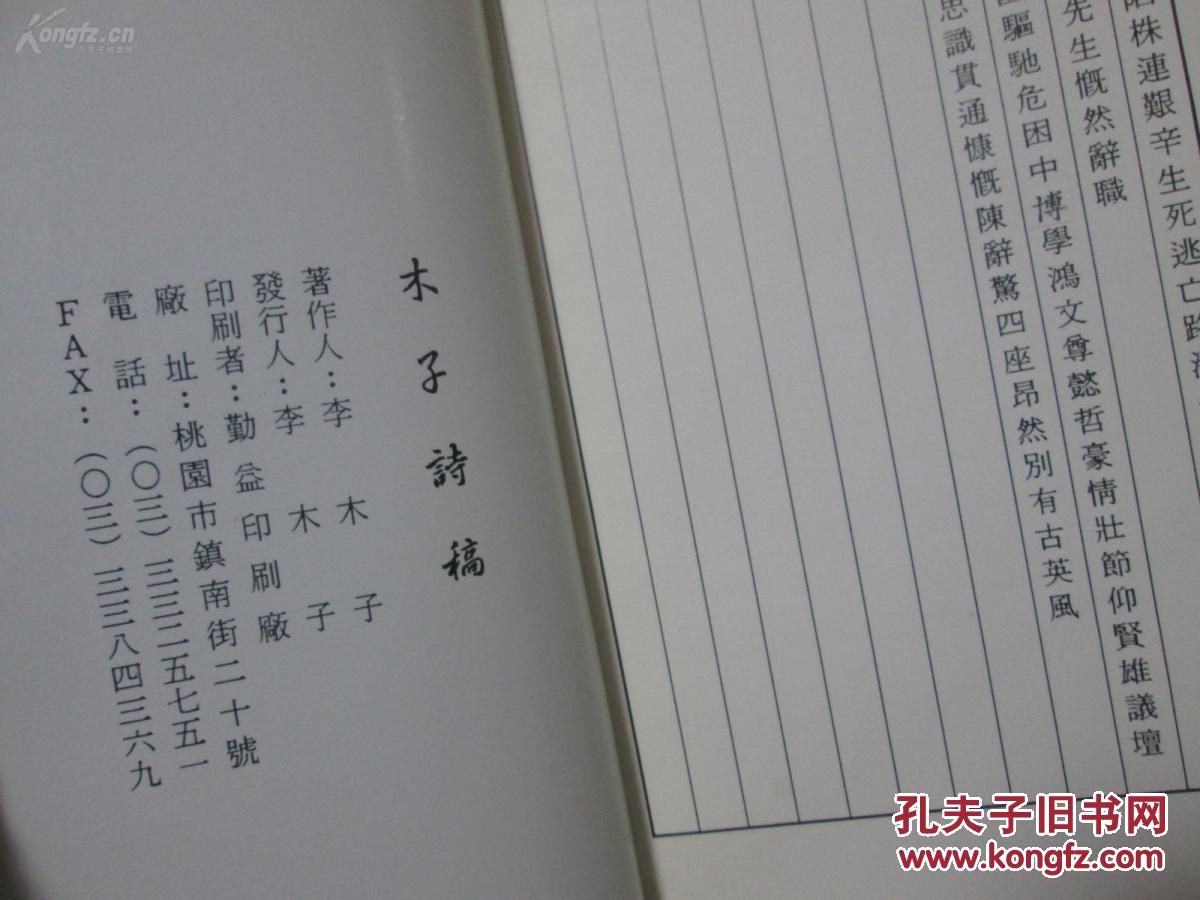 株連艱辛生死逃亡路
先生慨然辭職
驅馳危困中博學鴻文尊懿哲豪情壯節仰賢雄議壇
思識貫通慷慨陳辭驚四座昂然別有古英風
木子詩稿
著作人：李木子
發行人：李木子
印刷者：勤益印刷廠
廠址：桃園市鎮南街二十號
電話：（〇三）三三二五七五一
FAX：（〇三）三三八四三六九
Kongfz.cn
孔夫子旧书网
孔夫子旧书网
www.kongfz.com